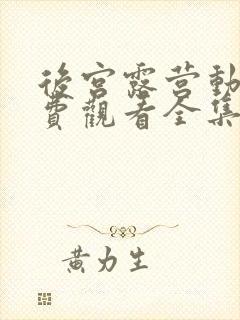 後宮露营動
費觀看全集
黃力生